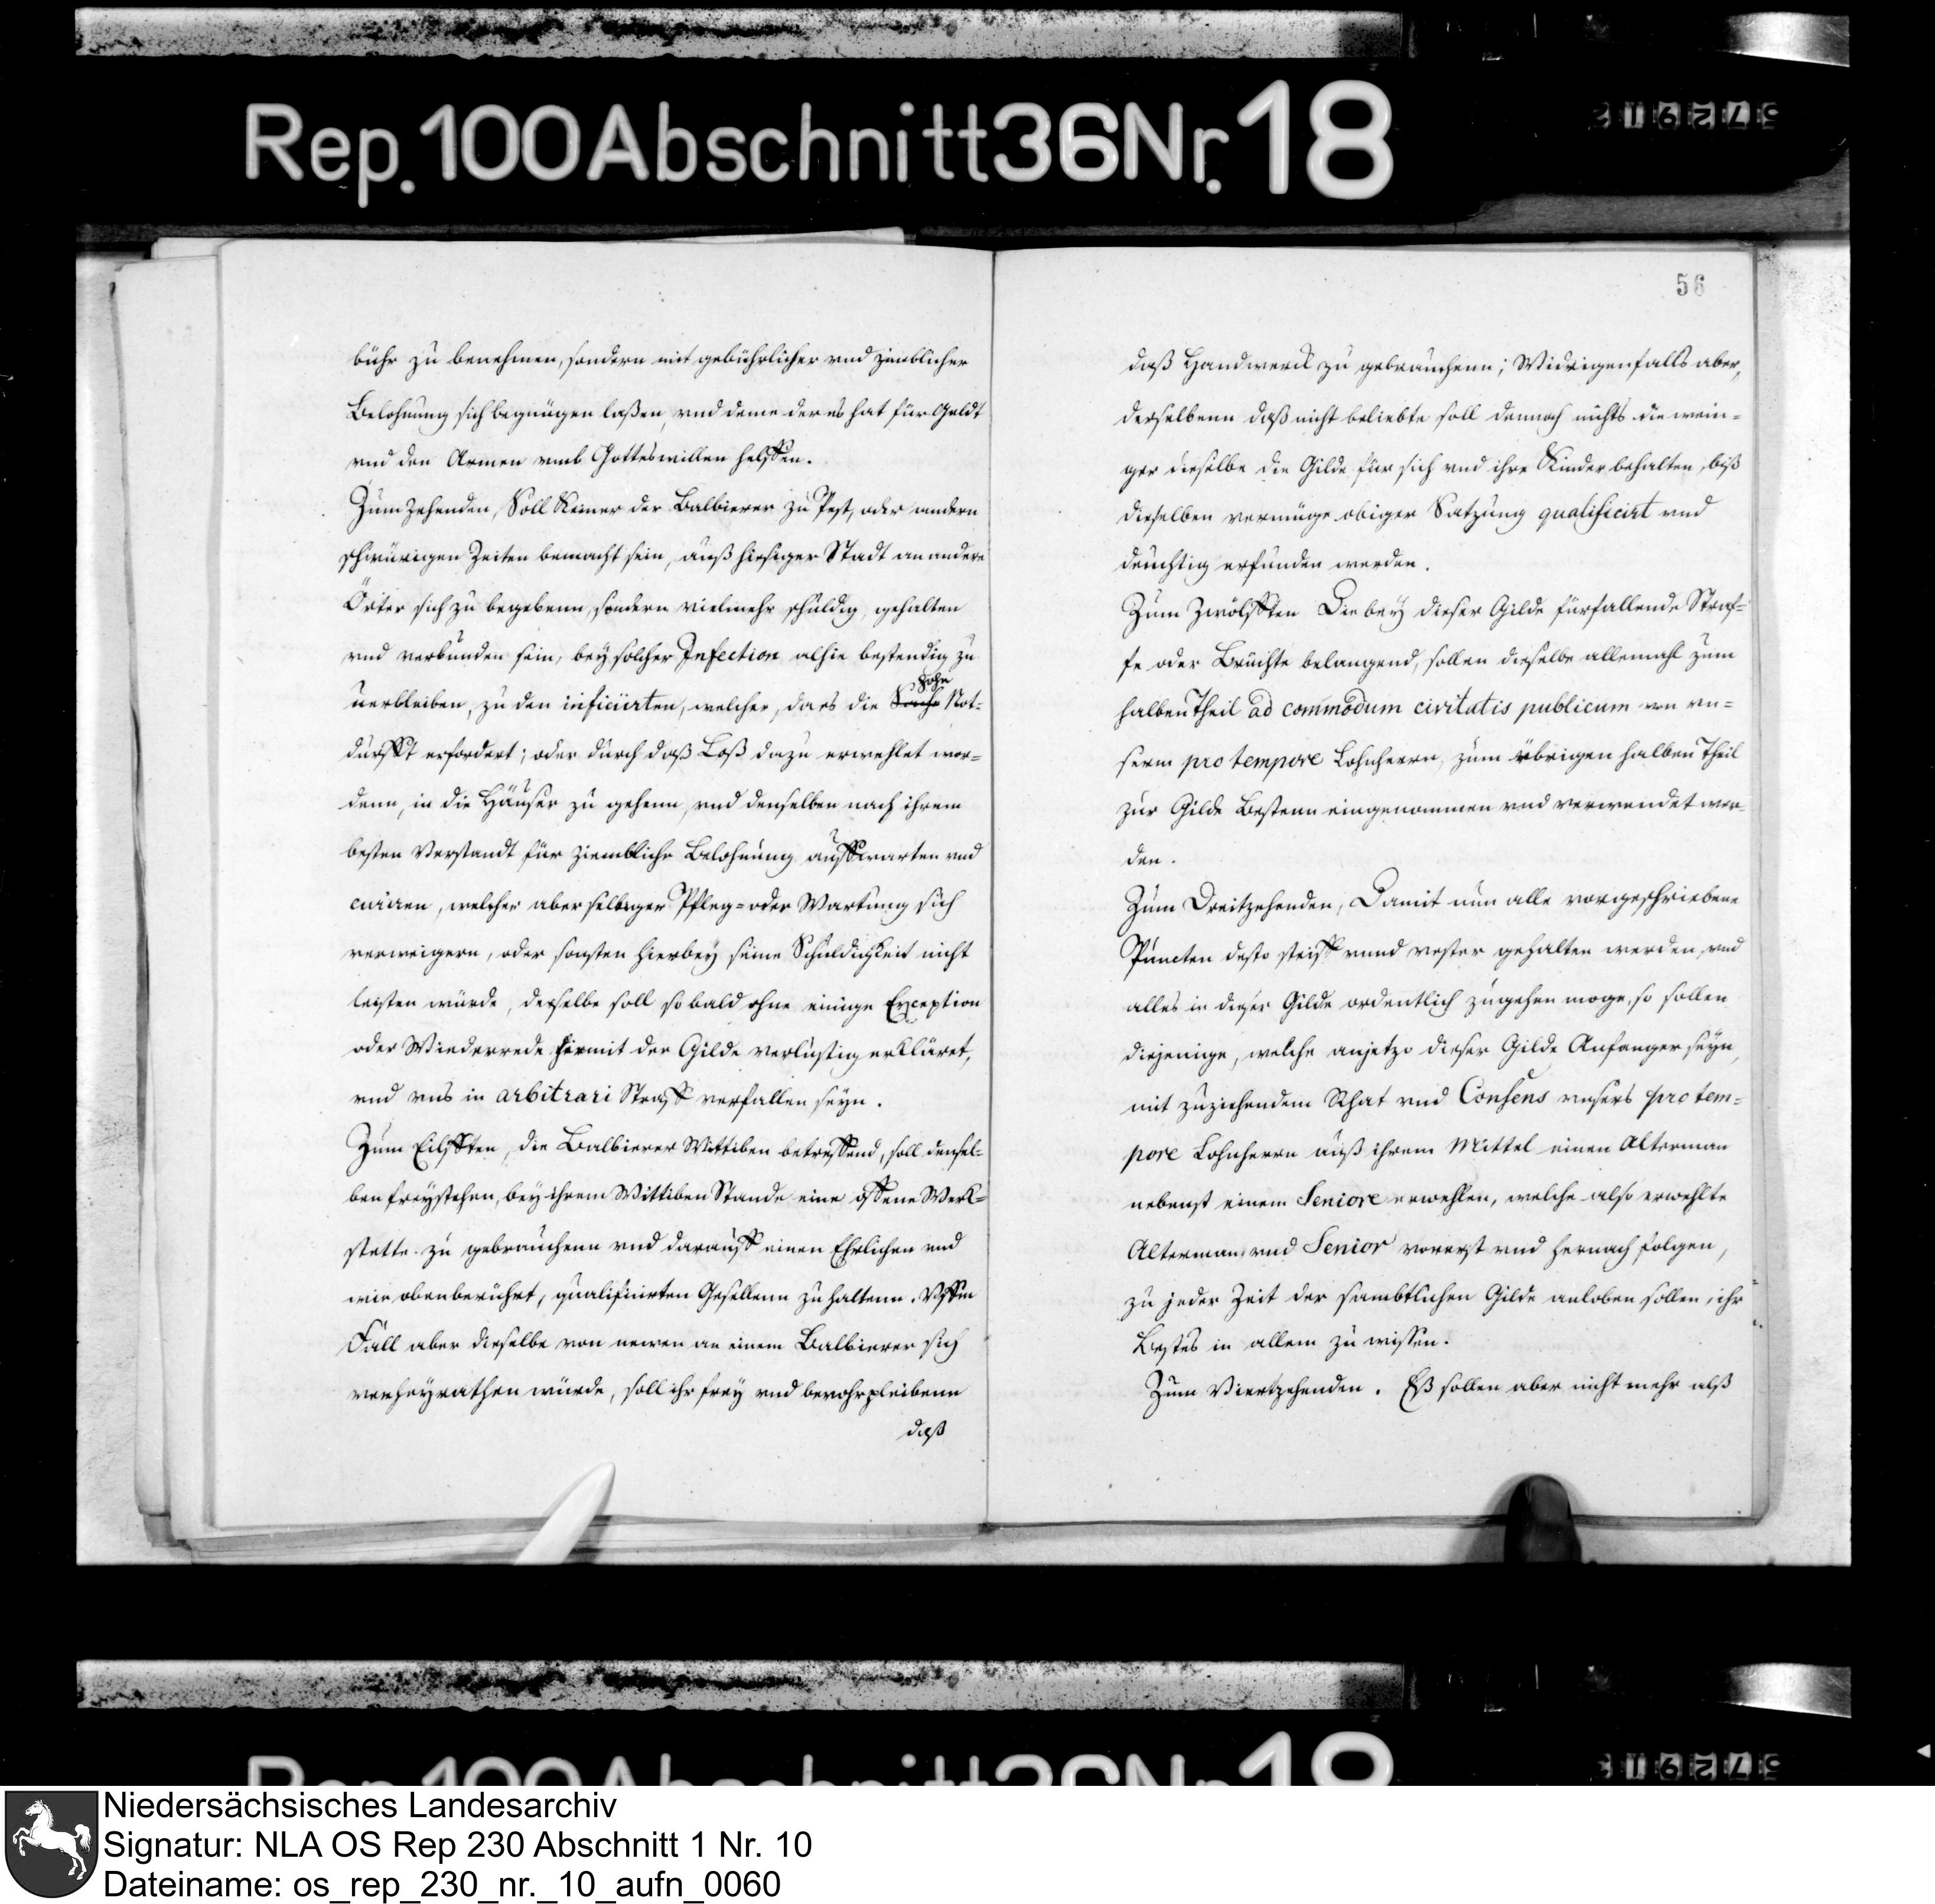 Rep. 100 Abschnitt 36 Nr. 18
56
bühr zu benehmen, sondern mit gebührlicher vnd zimblicher
Belohnung sich begnügen laßen, vnd deme der es hat für Geldt
vnd den Armen vmb Gotteswillen helffen.
Zum Zehenden, Soll Keiner der Balbierer zu Pest, oder andern
schwürigen Zeiten bemacht sein, auß hiesiger Stadt an andere
Örter sich zu begebenn, sondern vielmehr schuldig, gehalten
vnd verbunden sein, bey solcher Infection alhie bestendig zu
uerbleiben, zu den inficiirten, welcher, da es die hohe Not-
durfft erfordert; oder durch daß Loß dazu erwehlet wor-
denn, in die Häuser zu gehenn, vnd denselben nach ihrem
besten Verstandt für ziembliche Belohnung auffwarten vnd
curiren, welcher aber selbiger Pfleg- oder Wartung sich
verweigern, oder sonsten hierbey seine Schuldigkeit nicht
leisten würde, derselbe soll so bald ohne einige Exception
oder Wiederrede hiemit der Gilde verlustig erkläret,
vnd vns in arbitrari Straff verfallen seyn.
Zum Eilfften, die Balbierer Wittiben betreffend, soll densel-
ben freystehen, bey ihrem Wittiben Stande eine offene Werk-
stette zu gebrauchenn vnd darauff einen Ehrlichen vnd
wie obenberührt, qualificirten Gesellenn zu haltenn. Vffm
Fall aber dieselbe von newen an einem Balbierer sich
verheyrathen würde, soll ihr frey vnd bevohrpleibenn
daß
daß Handwerck zu gebrauchenn; Widrigenfalls aber,
derselbenn daß nicht beliebte soll dennoch nichts die wein-
ger dieselbe die Gilde für sich vnd ihre Kinder behalten, biß
dieselben vermüge obiger Satzung qualificirt vnd
deuchtig erfunden werden.
Zum Zwölfften Die bey dieser Gilde fürfallende Straf-
fe oder Brüchte belangend, sollen dieselbe allemahl zum
halben Theil ad commodum civitatis publicum von vn-
serm pro tempore Lohnherrn, zum übrigen halben Theil
zur Gilde Bestenn eingenommen vnd verwendet wer-
den.
Zum Dreitzehenden, Damit nun alle vorgeschriebene
Puncten desto steiff vnnd vester gehalten werden, vnd
alles in dieser Gilde ordentlich zugehen moge, so sollen
diejenige, welche anjetzo dieser Gilde Anfanger seyn,
mit zuziehendem Rhat vnd Consens vnsers pro tem-
pore Lohnherrn auß ihrem Mittel einen Alterman
nebenst einem Seniore erwehlen, welche also erwehlte
Alterman vnd Senior vorerst vnd hernach folgen,
zu jeder Zeit der sämbtlichen Gilde anloben sollen, ihr
Bestes in allem zu wissen.
Zum Viertzehenden. Eß sollen aber nicht mehr alß
Niedersächsisches Landesarchiv
Signatur: NLA OS Rep 230 Abschnitt 1 Nr. 10
Dateiname: os_rep_230_nr._10_aufn_0060